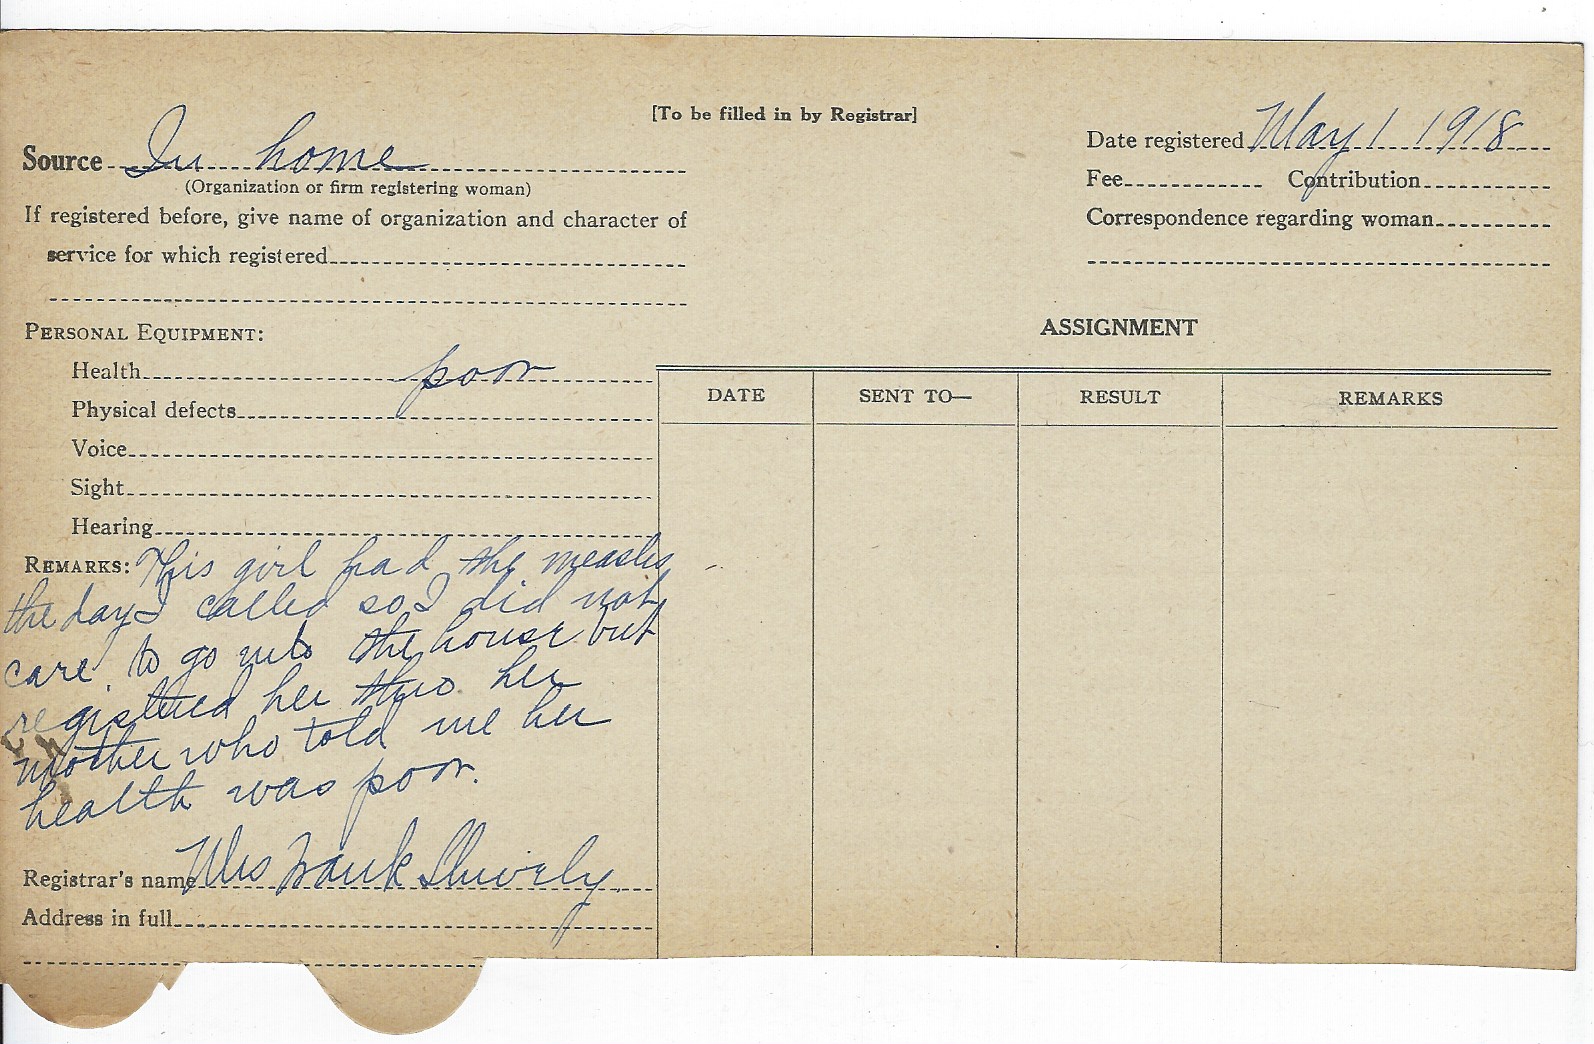 [To be filled in by Registrar]
Source In home
(Organization or firm registering woman)
If registered before, give name of organization and character of
service for which registered
Date registered May 1 1918
Fee Contribution
Correspondence regarding woman
PERSONAL EQUIPMENT:
Health poor
Physical defects
Voice
Sight
Hearing
REMARKS: This girl had the measles
the day I called so I did not
care to go into the house but
registered her thro her
mother who told me her
health was poor.
Registrar's name Mrs Frank Shively
Address in full
ASSIGNMENT
DATE SENT TO— RESULT REMARKS